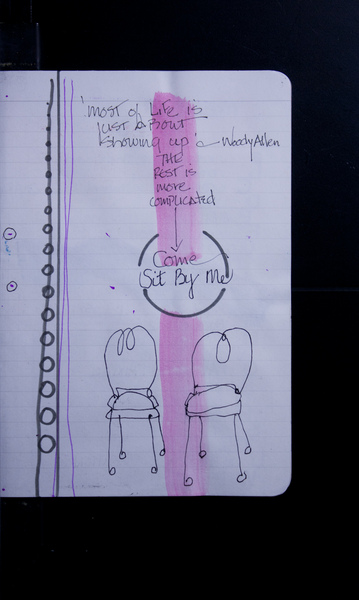 "most of Life is
just about
showing up" – Woody Allen
THE
REST is
more
complicated
Come
Sit By Me